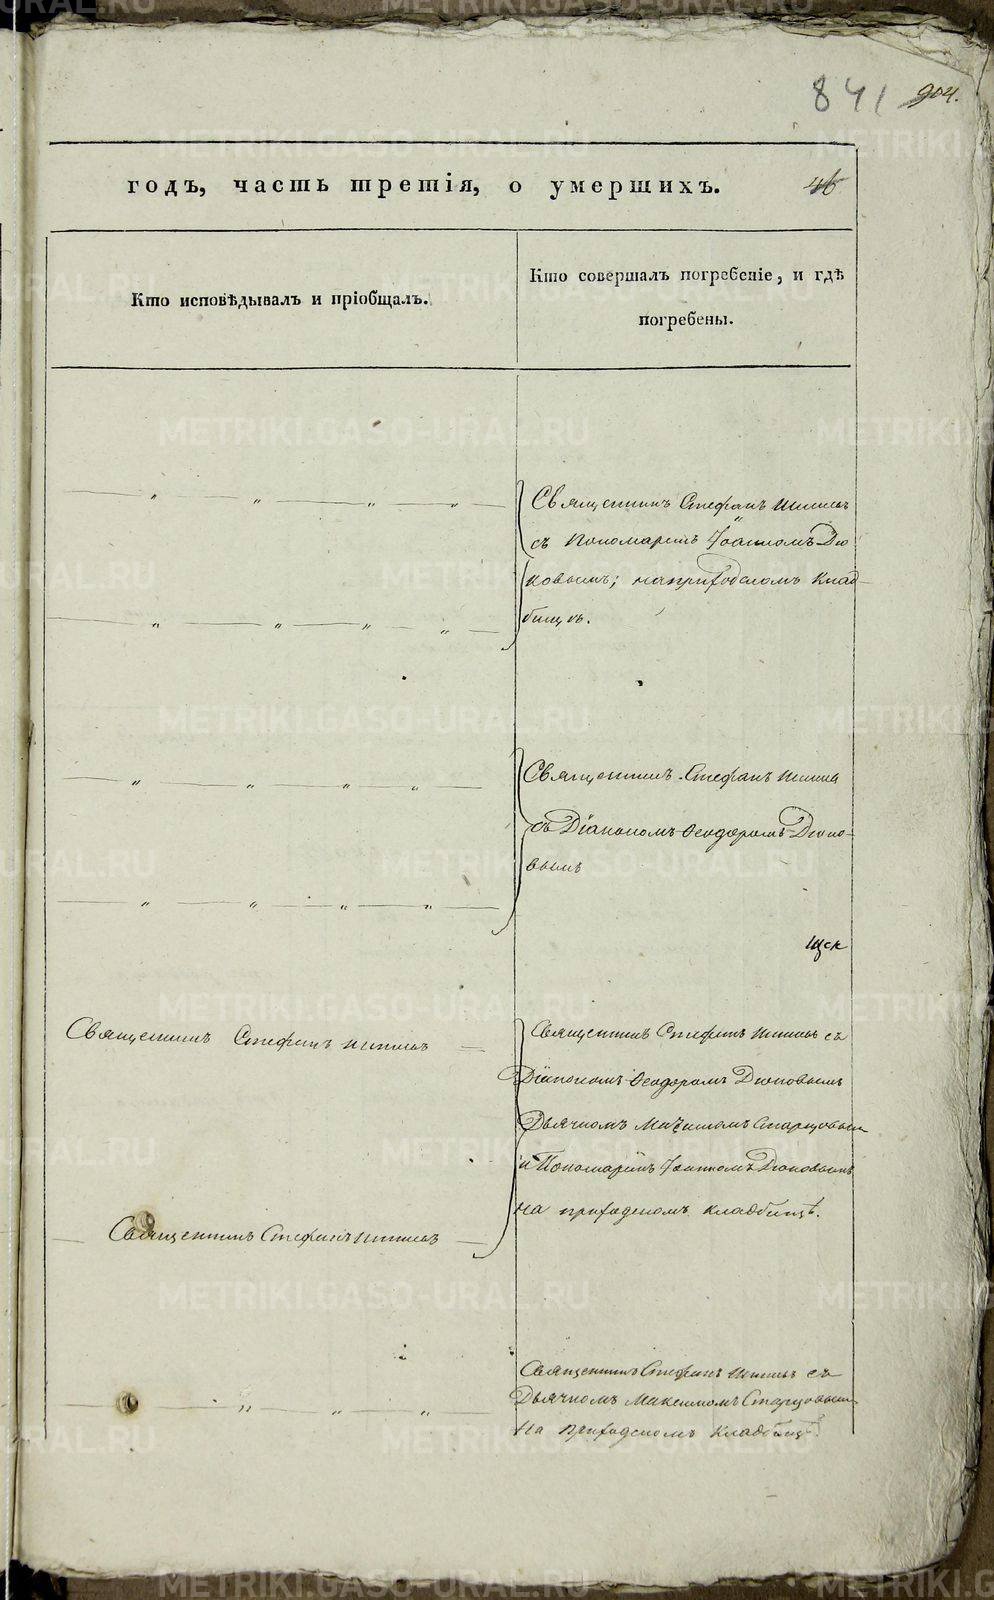 841 904.
годъ, часть третія, о умершихъ. 46
Кто исповѣдывалъ и пріобщалъ.
Кто совершалъ погребеніе, и гдѣ
погребены.
Священникъ Стефанъ
съ Пономаремъ Іоанномъ Дю
ковымъ; наприходскомъ клад-
бищѣ.
Священникъ Стефанъ
съ Діакономъ Ѳеодоромъ Дюко-
вымъ
Священникъ Стефанъ
Священникъ Стефанъ съ
Діакономъ Ѳеодоромъ Дюковымъ
Дьячкомъ Максимомъ Старцовым
и Пономарёмъ Іоанномъ Дюковымъ
на приходскомъ кладбищѣ.
Священникъ Стефанъ
Священникъ Стефанъ съ
Дьячкомъ Максимомъ Старцовым
на приходскомъ кладбищѣ.
METRIKI.GASO-URAL.RU